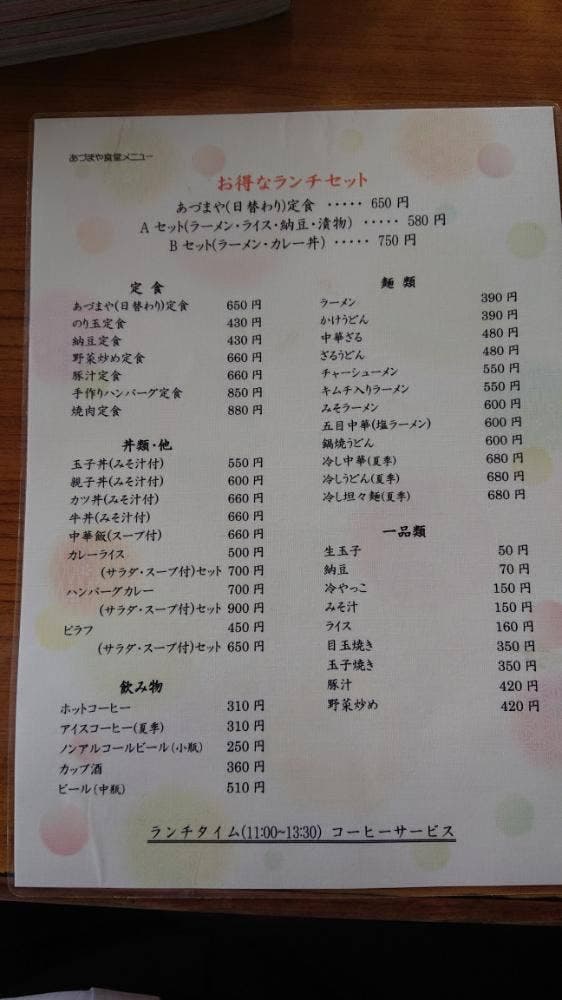 あづまや食堂メニュー
お得なランチセット
あづまや(日替わり)定食 ····· 650 円
A セット(ラーメン・ライス・納豆・漬物) ····· 580 円
B セット(ラーメン・カレー丼) ····· 750 円
定 食
あづまや(日替わり)定食 650 円
のり玉定食 430 円
納豆定食 430 円
野菜炒め定食 660 円
豚汁定食 660 円
手作りハンバーグ定食 850 円
焼肉定食 880 円
丼類・他
玉子丼(みそ汁付) 550 円
親子丼(みそ汁付) 600 円
カツ丼(みそ汁付) 660 円
牛丼(みそ汁付) 660 円
中華飯(スープ付) 660 円
カレーライス 500 円
(サラダ・スープ付)セット 700 円
ハンバーグカレー 700 円
(サラダ・スープ付)セット 900 円
ピラフ 450 円
(サラダ・スープ付)セット 650 円
飲み物
ホットコーヒー 310 円
アイスコーヒー(夏季) 310 円
ノンアルコールビール(小瓶) 250 円
カップ酒 360 円
ビール(中瓶) 510 円
麺 類
ラーメン 390 円
かけうどん 390 円
中華ざる 480 円
ざるうどん 480 円
チャーシューメン 550 円
キムチ入りラーメン 550 円
みそラーメン 600 円
五目中華(塩ラーメン) 600 円
鍋焼うどん 600 円
冷し中華(夏季) 680 円
冷しうどん(夏季) 680 円
冷し坦々麺(夏季) 680 円
一品類
生玉子 50 円
納豆 70 円
冷やっこ 150 円
みそ汁 150 円
ライス 160 円
目玉焼き 350 円
玉子焼き 350 円
豚汁 420 円
野菜炒め 420 円
ランチタイム(11:00~13:30) コーヒーサービス